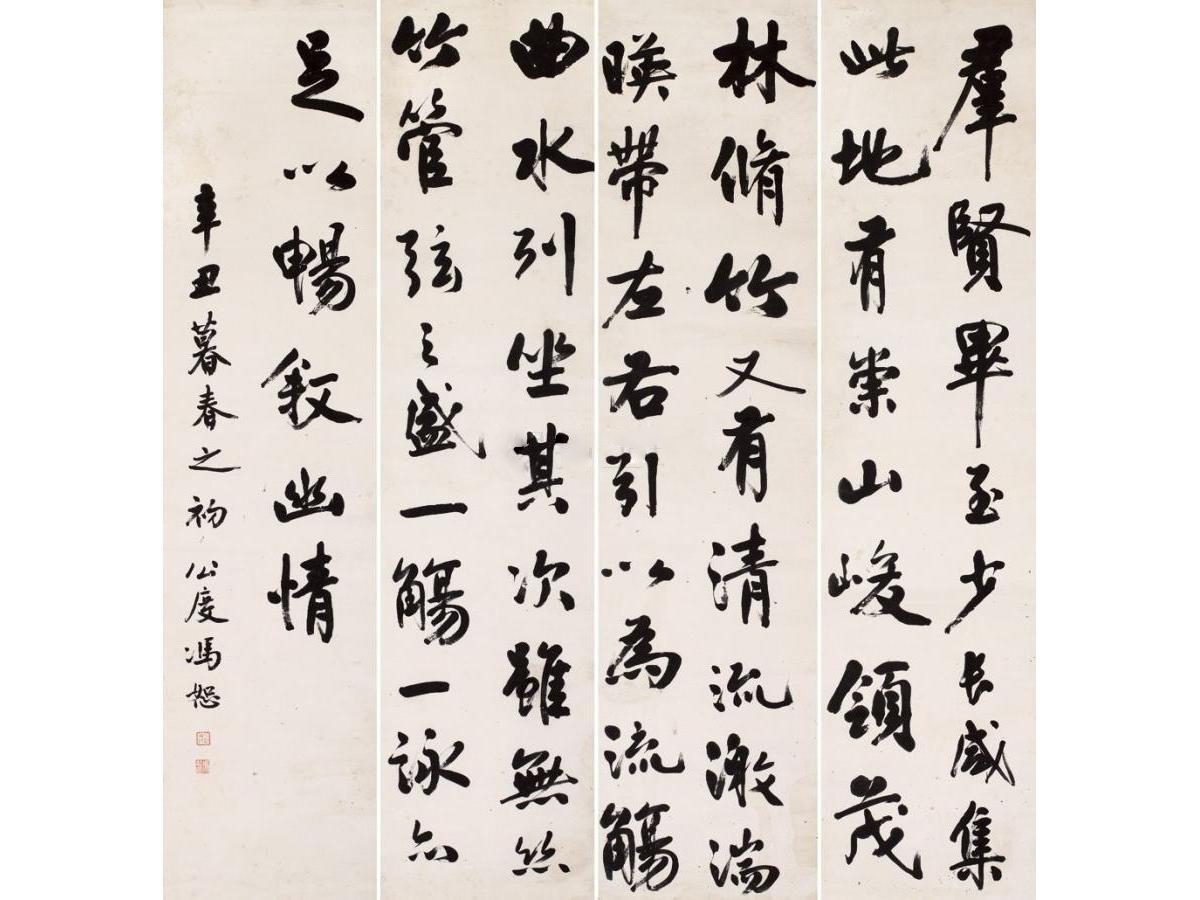 羣賢畢至少長咸集
此地有崇山峻領茂
林脩竹又有清流激湍
暎帶左右引以為流觴
曲水列坐其次雖無絲
竹管弦之盛一觴一詠亦
足以暢敘幽情
辛丑暮春之初 公度馮恕